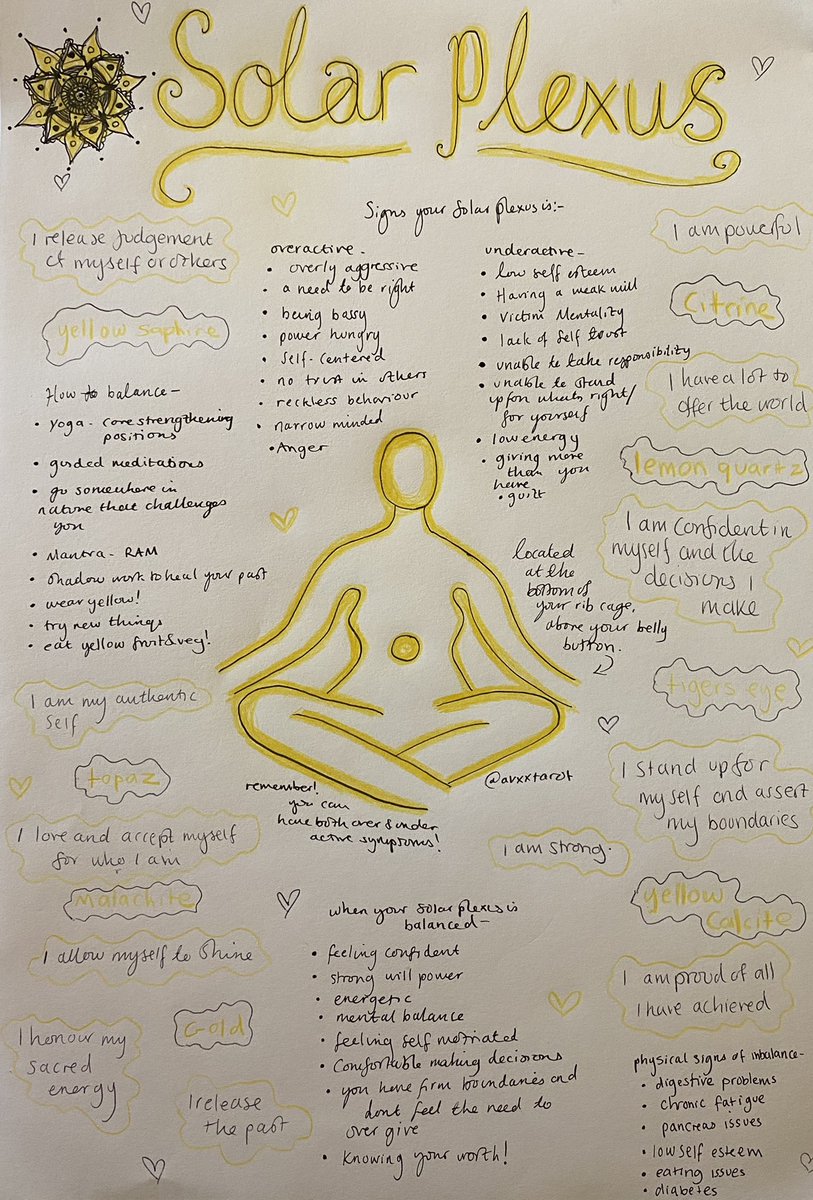 Solar Plexus
Signs your Solar plexus is:-
I release judgement
of myself or others
yellow saphire
How to balance-
• Yoga - core strengthening
positions
• guided meditations
• go somewhere in
nature that challenges
you
• Mantra - RAM
• Shadow work to heal your past
• wear yellow!
• try new things
• eat yellow fruit & veg!
I am my authentic
self
topaz
I love and accept myself
for who I am
Malachite
I allow myself to shine
Gold
I honour my
sacred
energy
I release
the past
overactive -
• overly aggressive
• a need to be right
• being bossy
• power hungry
• Self-centered
• no trust in others
• reckless behaviour
• narrow minded
• Anger
underactive -
• low self esteem
• Having a weak will
• Victim Mentality
• lack of Self trust
• unable to take responsibility
• unable to stand
up for whats right/
for yourself
• low energy
• giving more
than you
have
• guilt
located
at the
bottom of
your rib cage,
above your belly
button.
@avxxtarot
remember!
you can
have both over & under
active symptoms!
I am strong.
when your Solar plexus is
balanced-
• feeling confident
• strong will power
• energetic
• mental balance
• feeling self motivated
• Comfortable making decisions
• you have firm boundaries and
dont feel the need to
over give
• Knowing your worth!
I am powerful
Citrine
I have a lot to
offer the world
lemon quartz
I am confident in
myself and the
decisions I
make
tigers eye
I stand up for
myself and assert
my boundaries
yellow
Calcite
I am proud of all
I have achieved
physical signs of imbalance-
• digestive problems
• chronic fatigue
• pancreas issues
• low self esteem
• eating issues
• diabetes